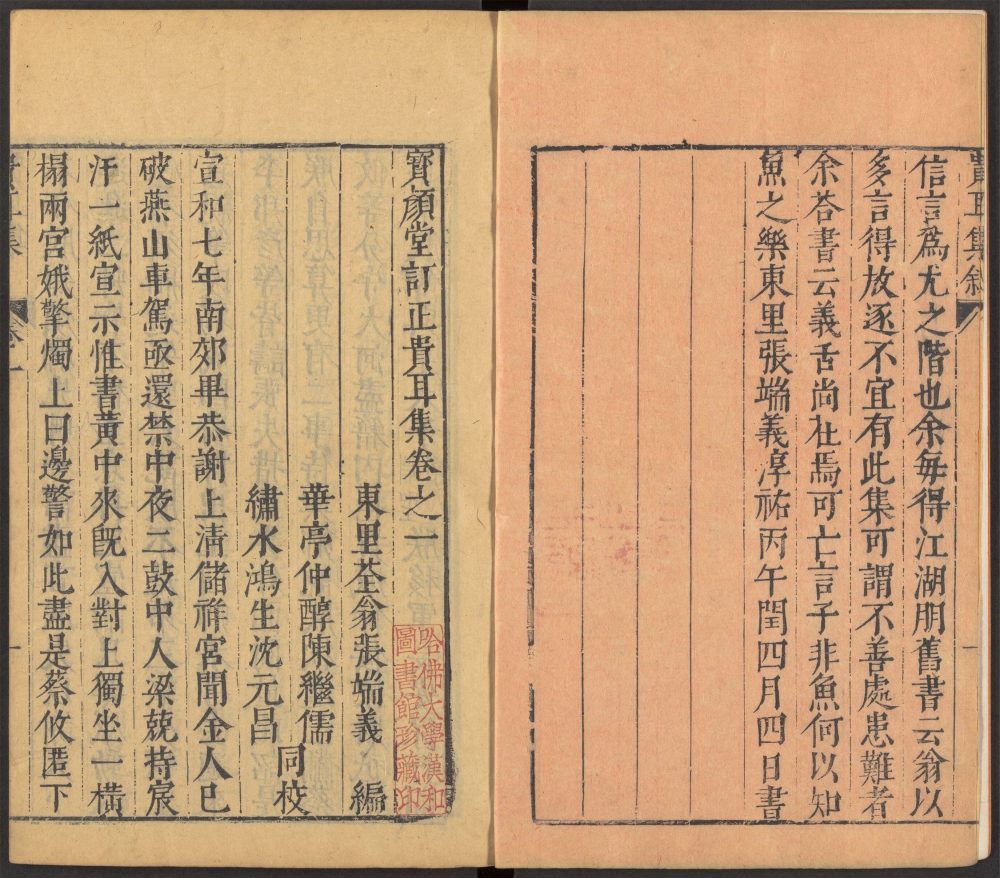 貴耳集叙
信言爲尤之階也余每得江湖朋舊書云翁以
多言得放逐不宜有此集可謂不善處患難者
余荅書云義舌尚在焉可亡言子非魚何以知
魚之樂東里張端義淳祐丙午閏四月四日書
一
寳顔堂訂正貴耳集卷之一
東里荃翁張端義 編
華亭仲醇陳繼儒
同校
繡水鴻生沈元昌
宣和七年南郊畢恭謝上清儲祥宮聞金人已
破燕山車駕亟還禁中夜二鼓中人梁兢持宸
汗一紙宣示惟書黃中來旣入對上獨坐一橫
榻兩宮娥擎燭上曰邊警如此盡是蔡攸匿下
貴耳集
卷一
一
哈佛大學漢和
圖書館珍藏印